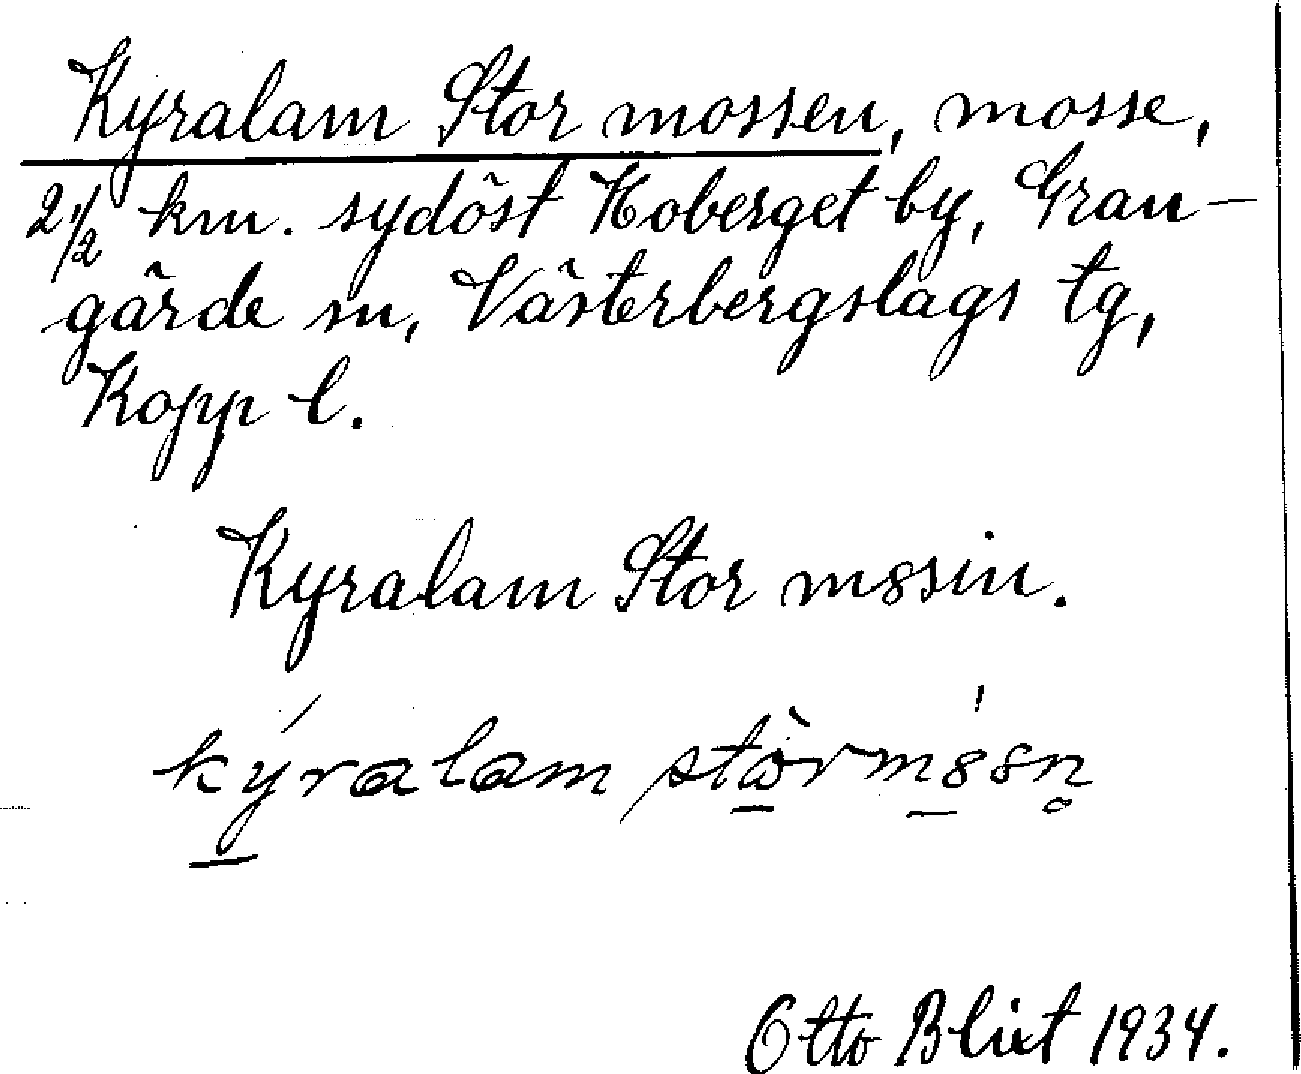 Kyralam Stor mossen, mosse,
2 1/2 km. sydöst Hoberget by, Gran-
gärde sn, Västerbergslags tg,
Kopp l.
Kyralam Stor m8sin.
kýralam stòrm8sn̥
Otto Blixt 1934.